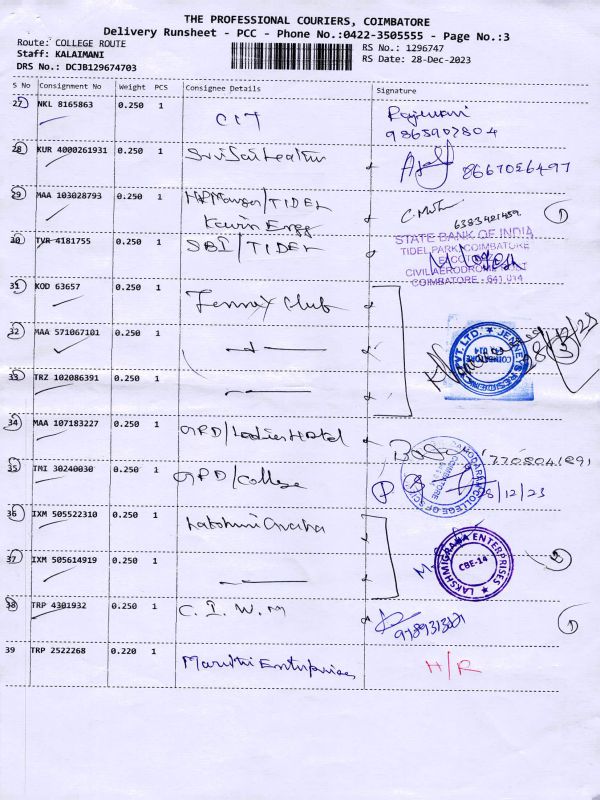 THE PROFESSIONAL COURIERS, COIMBATORE
Delivery Runsheet - PCC - Phone No.:0422-3505555 - Page No.:3
Route: COLLEGE ROUTE
Staff: KALAIMANI
DRS No.: DCJB129674703
RS No.: 1296747
RS Date: 28-Dec-2023
S No Consignment No Weight PCS Consignee Details Signature
27 NKL 8165863 0.250 1 CIT
9865907804
28 KUR 4000261931 0.250 1 8667026497
29 MAA 103028793 0.250 1 HR Manager/TIDEL 6383421459 1
Kevin Engg
30 TVR 4181755 0.250 1 SBI/TIDEL
STATE BANK OF INDIA
TIDEL PARK, COIMBATORE
CIVIL AERODROME POST
COIMBATORE - 641 014
31 KOD 63657 0.250 1 Club
32 MAA 571067101 0.250 1 28/12/23 3
JENNEYS PVT LTD.
COIMBATORE
33 TRZ 102086391 0.250 1
34 MAA 107183227 0.250 1 GRD/Ladies Hotel
35 TMI 30240030 0.250 1 GRD/College 28/12/23
COLLEGE OF
COIMBATORE
36 IXM 505522310 0.250 1 Lakshmi Graha
37 IXM 505614919 0.250 1 2
LAKSHMIGRAHA ENTERPRISES
CBE-14
38 TRP 4301932 0.250 1 C.I.W.M 1
39 TRP 2522268 0.220 1 Maruthi Enterprises H/R